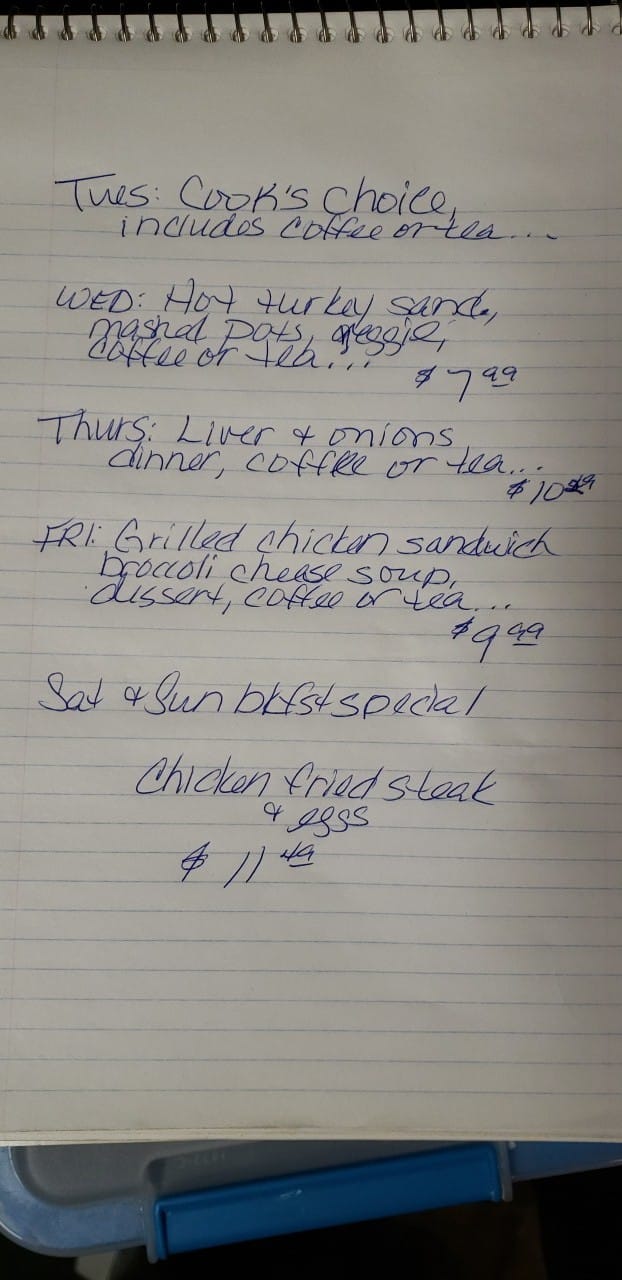 Tues: Cook's choice,
includes coffee or tea...
WED: Hot turkey sand,
mashed pots, veggie,
coffee or tea...
$7.99
Thurs: Liver & onions
dinner, coffee or tea...
FRI: Grilled chicken sandwich
broccoli cheese soup,
dessert, coffee or tea...
$9.99
Sat & Sun bkfst special
Chicken fried steak
& eggs
$11.49